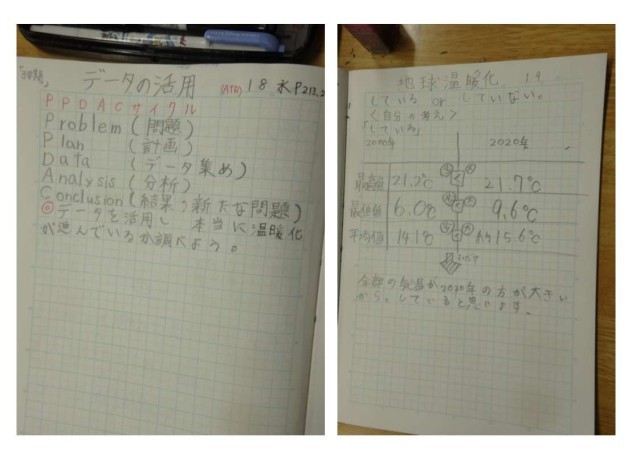 データの活用
18 水 P212.2
PPDACサイクル
Problem (問題)
Plan (計画)
Data (データ集め)
Analysis (分析)
Conclusion (結果、新たな問題)
◎データを活用し 本当に温暖化
が進んでいるか調べよう。
地球温暖化 19
している or していない。
〈自分の考え〉
「している」
2020年
最高値 21.2℃ < 21.7℃
最低値 6.0℃ < 9.6℃
平均値 14.1℃ < 約15.6℃
全部の気温が2020年の方が大きい
から。していると思います。